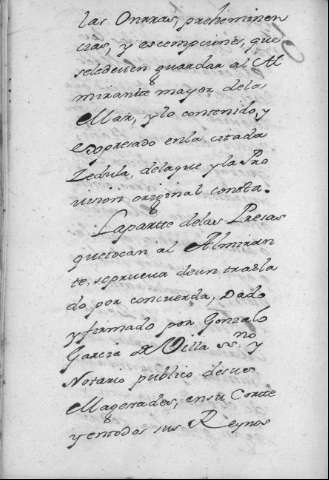 las Onrras, preheminen
cias, y escempciones, que
seledeven guardar al Al
mirante mayor dela
Mar, y lo contenido, y
Expresado enla citada
Zedula, delaque y la Pro
uision original consta.
Laparte delas Presas
quetocan al Almiran
te, seprueva deun trasla
do, por concuerda, Dado
y firmado por Gonzalo
Garcia de Villa ss.no y
Notario publico desus
Magestades, en su Corte
y entodos sus Reynos